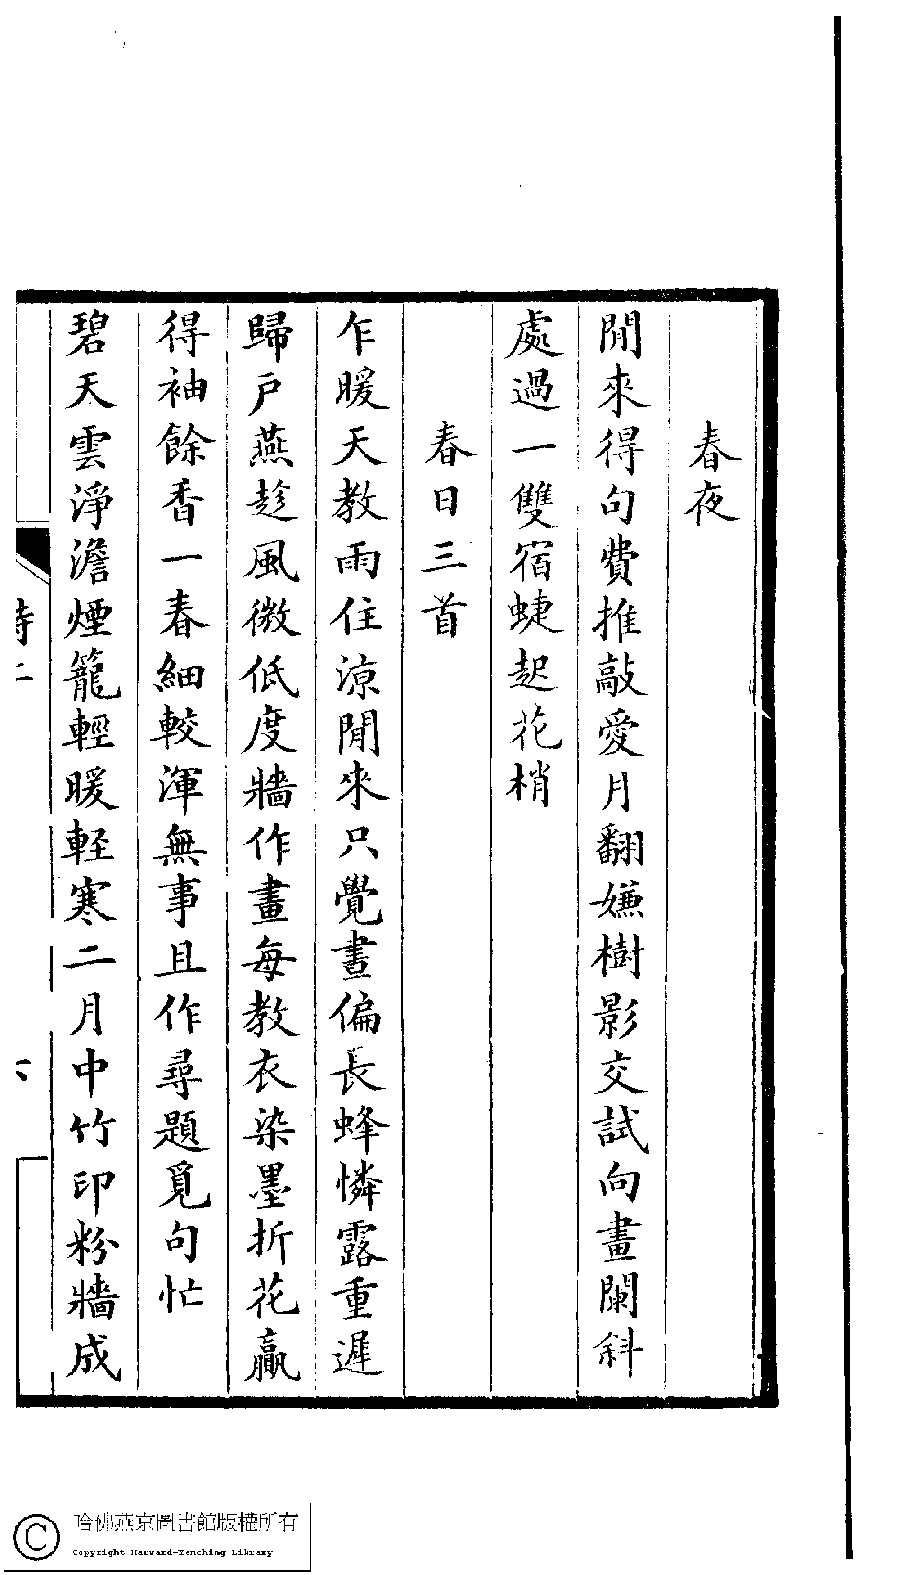 春夜
閒來得句費推敲愛月翻嫌樹影交試向畫闌斜
處過一雙宿蜨起花梢
春日三首
乍暖天教雨住涼閒來只覺晝偏長蜂憐露重遲
歸戶燕趁風微低度牆作畫每教衣染墨折花贏
得袖餘香一春細較渾無事且作尋題覓句忙
碧天雲淨澹煙籠輕暖輕寒二月中竹印粉牆成
哈佛燕京圖書館版權所有
Copyright Harvard-Yenching Library